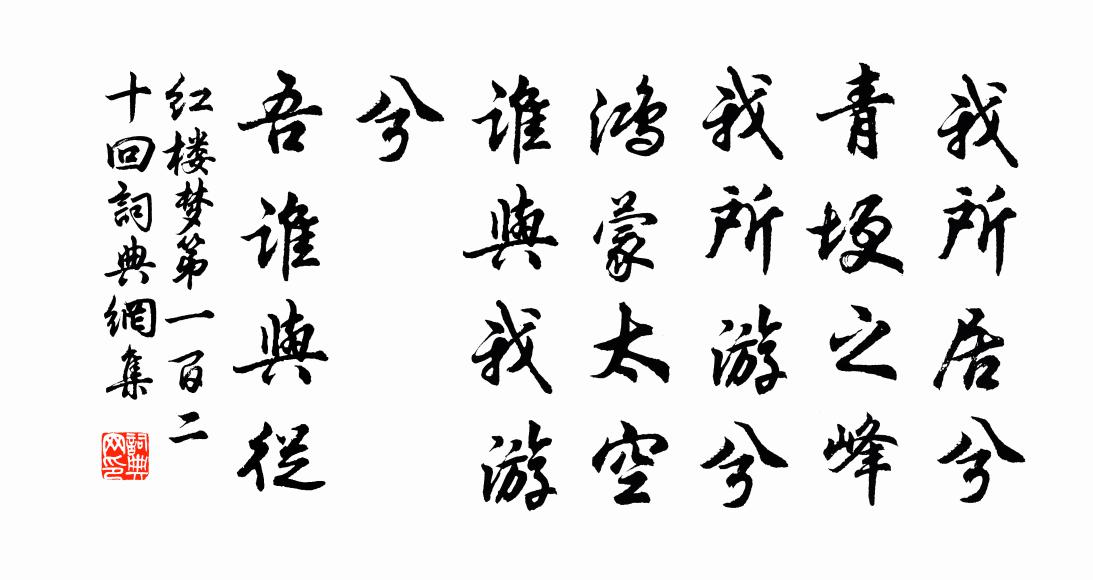 我所居兮
青埂之峰
我所游兮
鸿蒙太空
谁與我游
兮
吾谁與從
红楼梦第一百二
十回詞典網集
詞典
网印